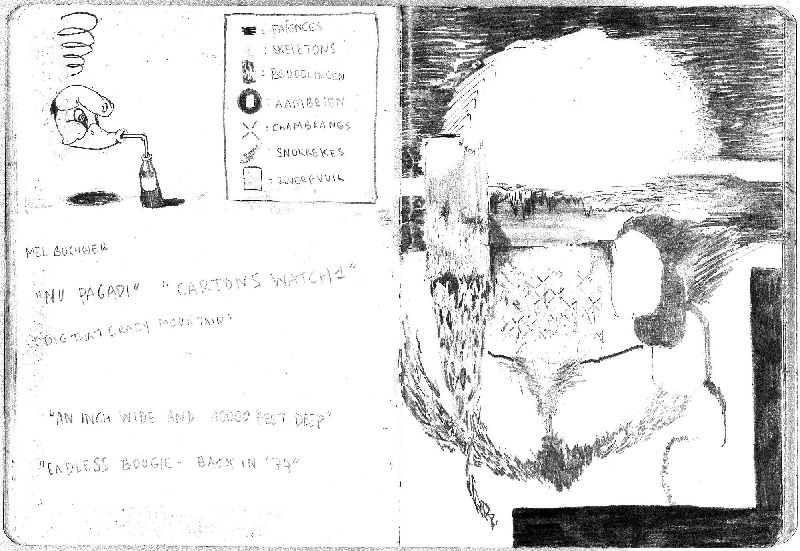 : FAÏENCES
: SKELETONS
: BOUDELINGEN
: AAMBEIEN
: CHAMBRANGS
SNORREKES
: ZWERFVUIL
MEL BOCHNER
"NU PAGADI" "CARTOONS WATCH 1"
"DIG THAT CRAZY MOUNTAIN"
"AN INCH WIDE AND 30000 FEET DEEP"
"ENDLESS BOOGIE - BACK IN '74"